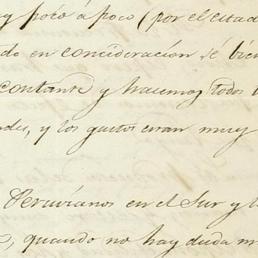 y poco á poco (por el estad
do en consideración sé bien
contante y hacemos todos
y los gastos eran muy
Peruvianos en el Sur y l
quando no hay duda